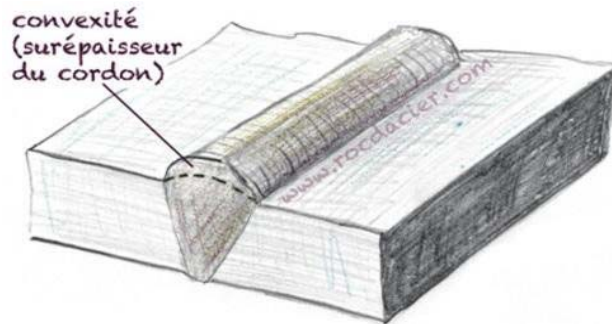 convexité
(surépaisseur
du cordon)
www.rocdacier.com